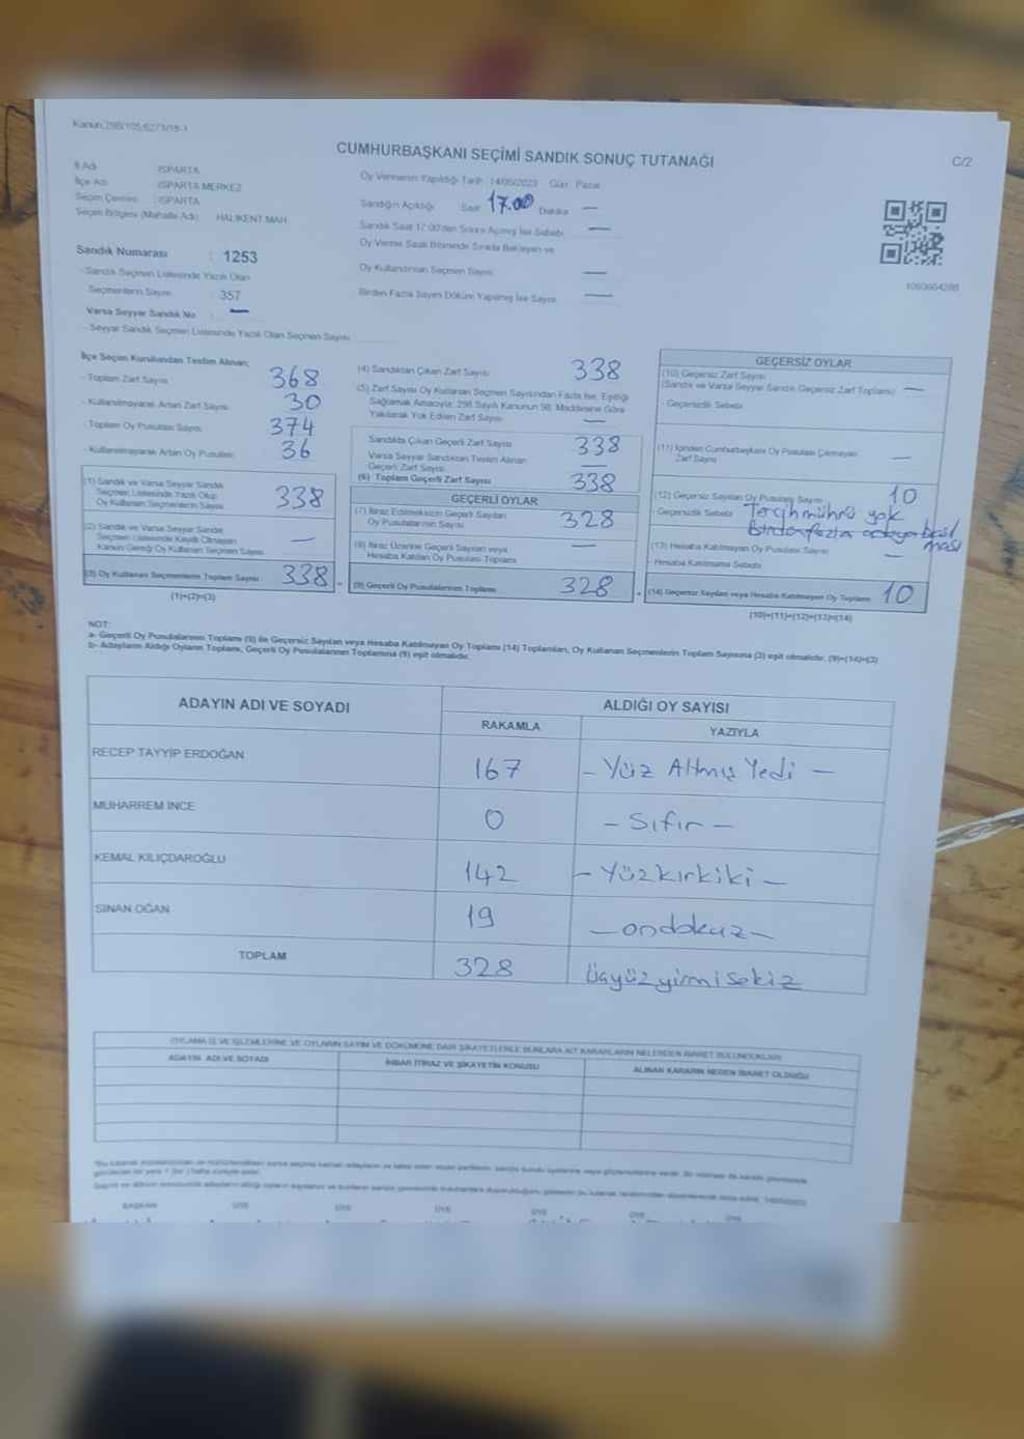 Kanun 298/105;6271/18-1
CUMHURBAŞKANI SEÇİMİ SANDIK SONUÇ TUTANAĞI
C/2
İl Adı : ISPARTA
İlçe Adı : ISPARTA MERKEZ
Seçim Çevresi : ISPARTA
Seçim Bölgesi (Mahalle Adı) : HALIKENT MAH.
Oy Vermenin Yapıldığı Tarih : 14/05/2023 Gün: Pazar
Sandığın Açıldığı Saat 17.00 Dakika —
Sandık Saat 17:00'den Sonra Açılmış İse Sebebi —
Oy Verme Saati Bitiminde Sırada Bekleyen ve
Oy Kullandırılan Seçmen Sayısı —
Birden Fazla Sayım Döküm Yapılmış İse Sayısı —
Sandık Numarası : 1253
- Sandık Seçmen Listesinde Yazılı Olan
Seçmenlerin Sayısı : 357
Varsa Seyyar Sandık No : —
- Seyyar Sandık Seçmen Listesinde Yazılı Olan Seçmen Sayısı
İlçe Seçim Kurulundan Teslim Alınan;
- Toplam Zarf Sayısı 368
- Kullanılmayarak Artan Zarf Sayısı 30
- Toplam Oy Pusulası Sayısı 374
- Kullanılmayarak Artan Oy Pusulası 36
(1) Sandık ve Varsa Seyyar Sandık
Seçmen Listesinde Yazılı Olup
Oy Kullanan Seçmenlerin Sayısı 338
(2) Sandık ve Varsa Seyyar Sandık
Seçmen Listesinde Kayıtlı Olmayan
Kanun Gereği Oy Kullanan Seçmen Sayısı —
(3) Oy Kullanan Seçmenlerin Toplam Sayısı 338
(1)+(2)=(3)
(4) Sandıktan Çıkan Zarf Sayısı 338
(5) Zarf Sayısı Oy Kullanan Seçmen Sayısından Fazla İse, Eşitliği
Sağlamak Amacıyla; 298 Sayılı Kanunun 98. Maddesine Göre
Yakılarak Yok Edilen Zarf Sayısı —
Sandıkta Çıkan Geçerli Zarf Sayısı 338
Varsa Seyyar Sandıktan Teslim Alınan
Geçerli Zarf Sayısı —
(6) Toplam Geçerli Zarf Sayısı 338
GEÇERLİ OYLAR
(7) İtiraz Edilmeksizin Geçerli Sayılan
Oy Pusulalarının Sayısı 328
(8) İtiraz Üzerine Geçerli Sayılan veya
Hesaba Katılan Oy Pusulası Toplamı —
(9) Geçerli Oy Pusulalarının Toplamı 328
GEÇERSİZ OYLAR
(10) Geçersiz Zarf Sayısı
(Sandık ve Varsa Seyyar Sandık Geçersiz Zarf Toplamı) —
- Geçersizlik Sebebi
(11) İçinden Cumhurbaşkanı Oy Pusulası Çıkmayan
Zarf Sayısı —
(12) Geçersiz Sayılan Oy Pusulası Sayısı 10
Geçersizlik Sebebi Tercih mührü yok
Birden fazla adaya basıl
ması
(13) Hesaba Katılmayan Oy Pusulası Sayısı —
- Hesaba Katılmama Sebebi
(14) Geçersiz Sayılan veya Hesaba Katılmayan Oy Toplamı 10
(10)+(11)+(12)+(13)=(14)
NOT:
a- Geçerli Oy Pusulalarının Toplamı (9) ile Geçersiz Sayılan veya Hesaba Katılmayan Oy Toplamı (14) Toplamları, Oy Kullanan Seçmenlerin Toplam Sayısına (3) eşit olmalıdır. (9)+(14)=(3)
b- Adayların Aldığı Oyların Toplamı, Geçerli Oy Pusulalarının Toplamına (9) eşit olmalıdır.
ADAYIN ADI VE SOYADI
ALDIĞI OY SAYISI
RAKAMLA YAZIYLA
RECEP TAYYİP ERDOĞAN 167 - Yüz Altmış Yedi -
MUHARREM İNCE 0 - Sıfır -
KEMAL KILIÇDAROĞLU 142 - Yüzkırkiki -
SİNAN OĞAN 19 - ondokuz -
TOPLAM 328 üçyüzyirmisekiz
OYLAMA İŞ VE İŞLEMLERİNE VE OYLARIN SAYIM VE DÖKÜMÜNE DAİR ŞİKAYETLERLE BUNLARA AİT KARARLARIN NELERDEN İBARET BULUNDUKLARI
ADAYIN ADI VE SOYADI
İHBAR İTİRAZ VE ŞİKAYETİN KONUSU
ALINAN KARARIN NEDEN İBARET OLDUĞU
BAŞKAN ÜYE ÜYE ÜYE ÜYE ÜYE ÜYE